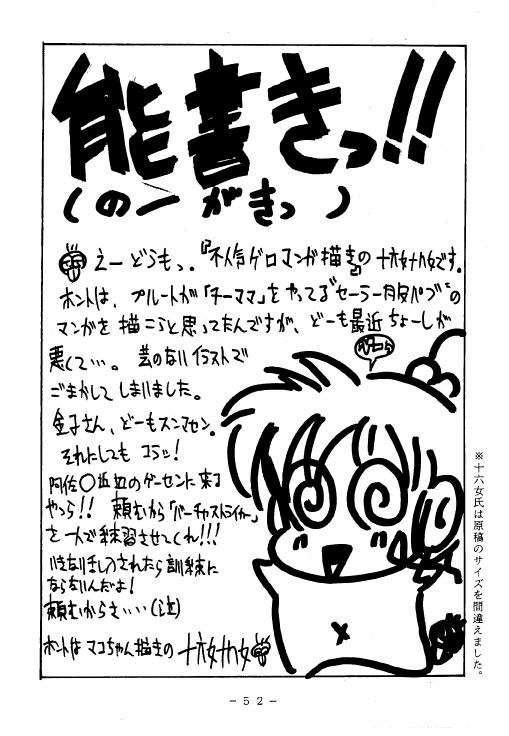 能書きっ!!
(のーがきっ)
えーどうもっ。『不人気ゲロマンガ描き』の十六女十八女です。
ホントは、プルートが「チーママ」をやってる"セーラー月夜パブ"の
マンガを描こうと思ってたんですが、どーも最近ちょーしが
悪くて…。芸のないイラストで
ごまかしてしまいました。
金子さん、どーもスンマセン。
それにしてもコラッ!
阿佐〇谷のゲーセンに来る
やつら!! 頼むから「バーチャストライカー」
を一人で練習させてくれ!!!
いきなり乱入されたら訓練に
ならないんだよ!
頼むからさ・・・(泣)
ホントはマコちゃん描きの 十六女十八女
ペコっ
※十六女氏は原稿のサイズを間違えました。
－52－